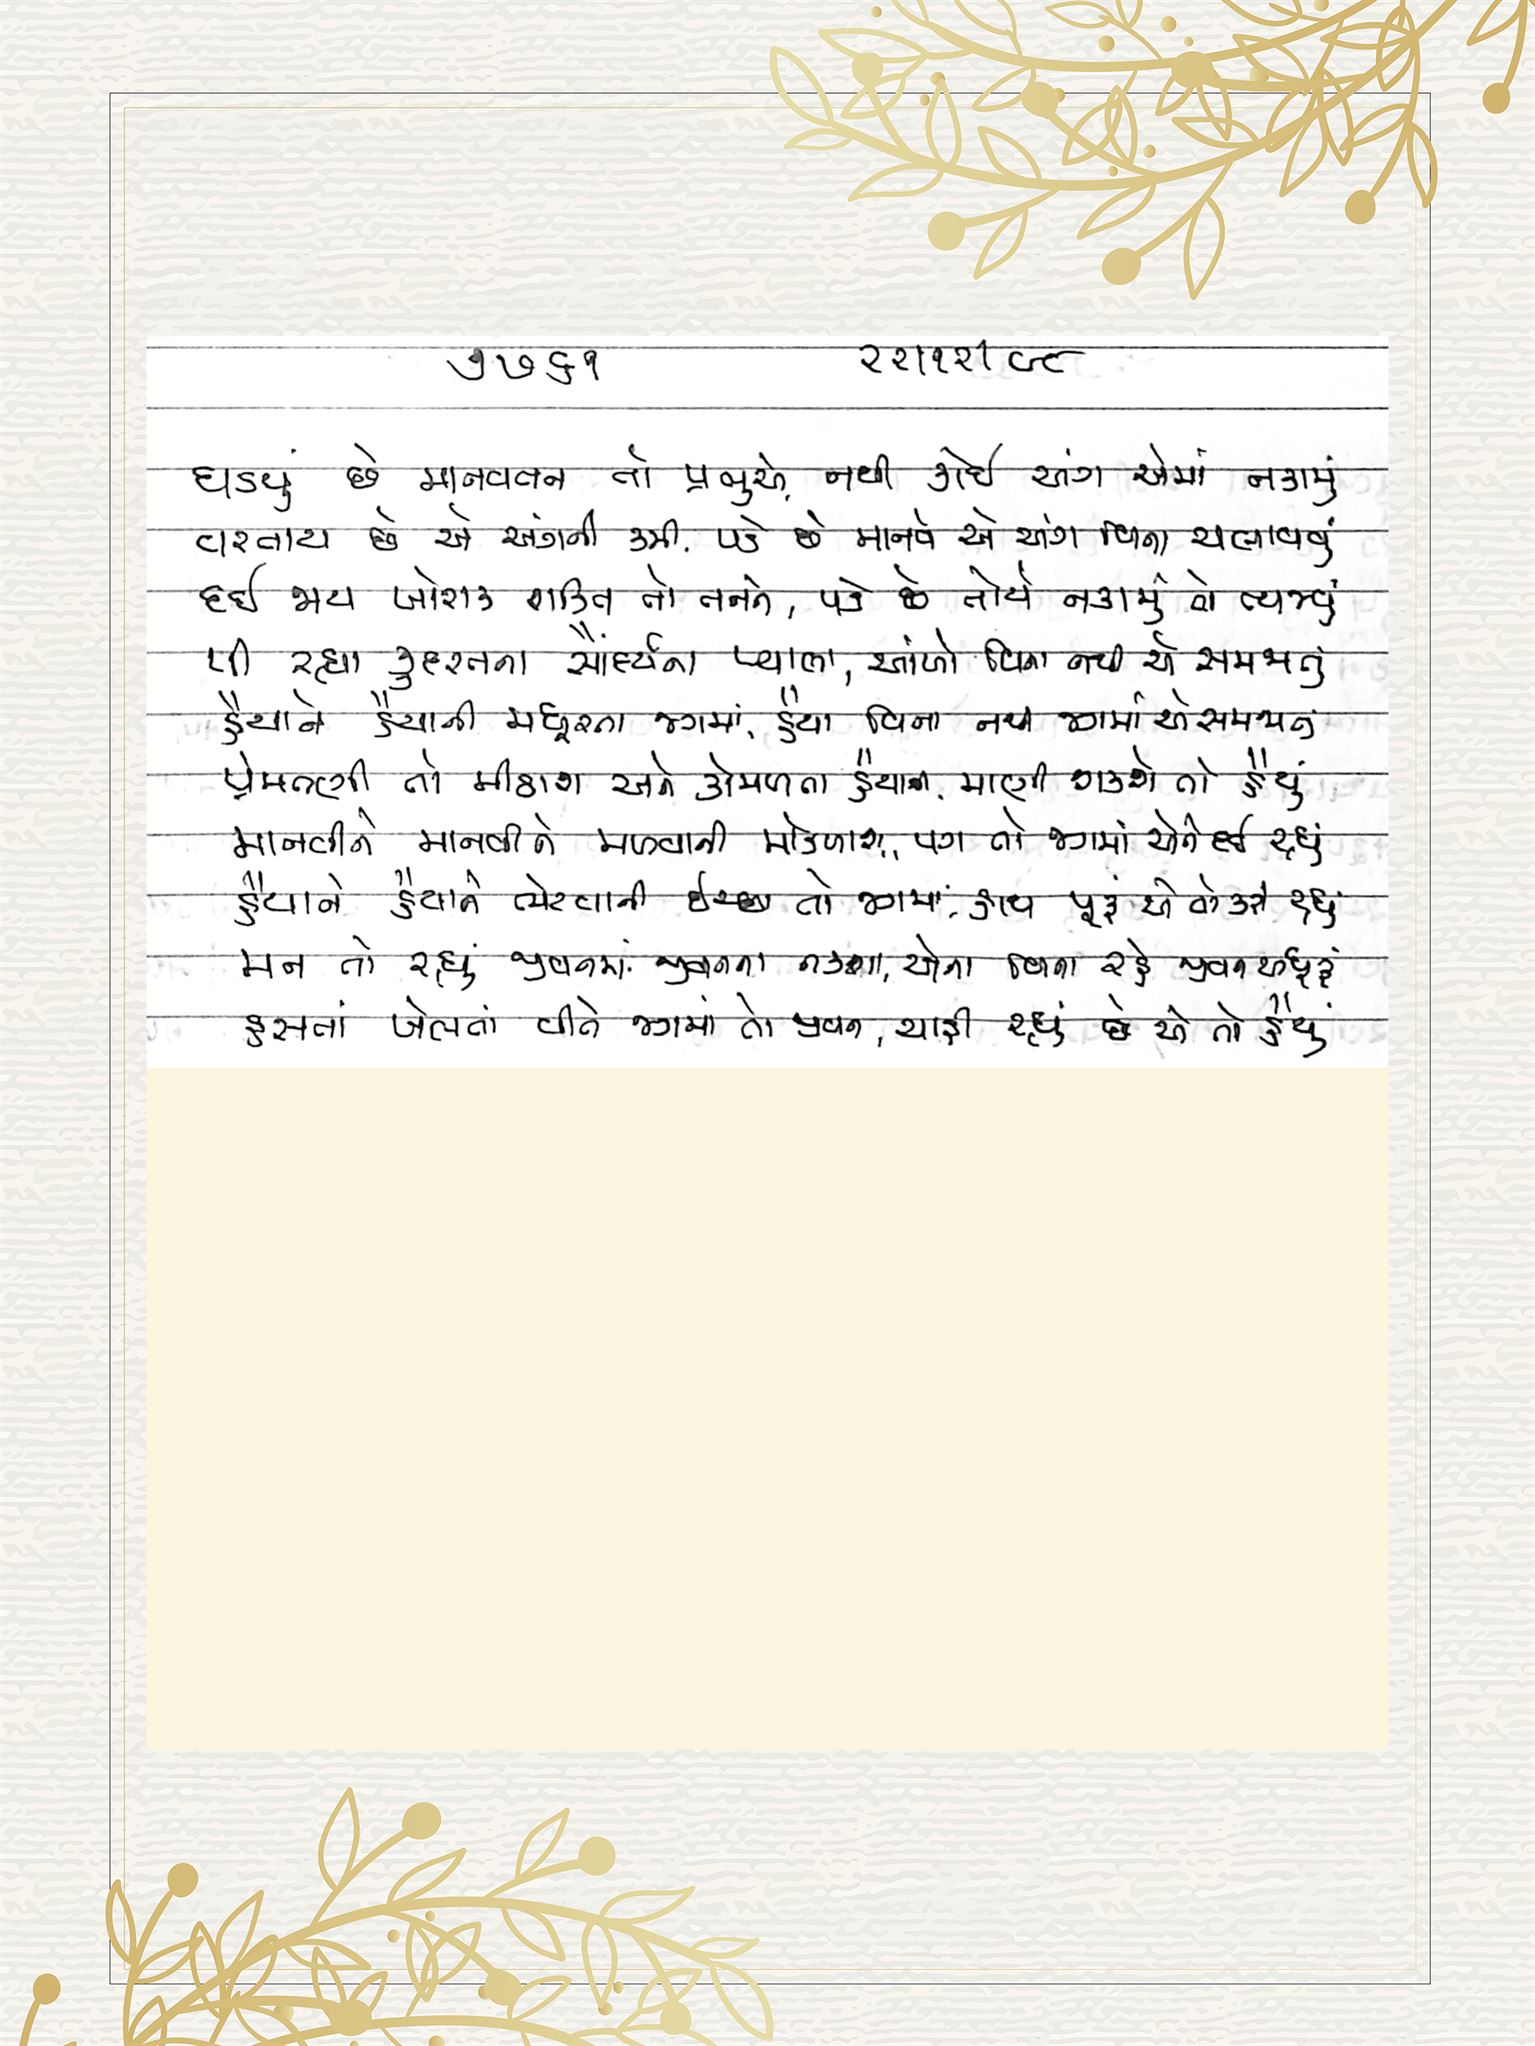 ૭૭૬૧ ૨૨।૧૨।૯૮
ઘડયું છે માનવતન તો પ્રભુએ, નથી કોઈ અંગ એમાં નકામું
વરતાય છે એ અંગની કમી, પડે છે માનવે એ અંગ વિના ચલાવવું
દઈ ભય જોશક શક્તિ તો તનને, પડે છે તોયે નકામું તો ત્યજવું
પી રહ્યા કુદરતના સૌંદર્યના પ્યાલા, આંખો વિના નથી એ સમજાતું
હૈયાને હૈયાની મધુરતા જગમાં, હૈયા વિના નથી જગમાં એ સમજાતું
પ્રેમતણી તો મીઠાશ અને કોમળતા હૈયાની, માણી શકશે તો હૈયું
માનવીને માનવીને મળવાની મોકળાશ, પગ તો જગમાં એને દઈ રહ્યું
હૈયાને હૈયાને ભેટવાની ઈચ્છા તો જગમાં, હાથ પૂરું એ તો કરી રહ્યું
મન તો રહ્યું જીવનમાં જીવનના નકશા, એના વિના રહે જીવન અધૂરું
હસતાં ખેલતાં વીતે જગમાં તો જીવન, ચાહી રહ્યું છે એ તો હૈયું